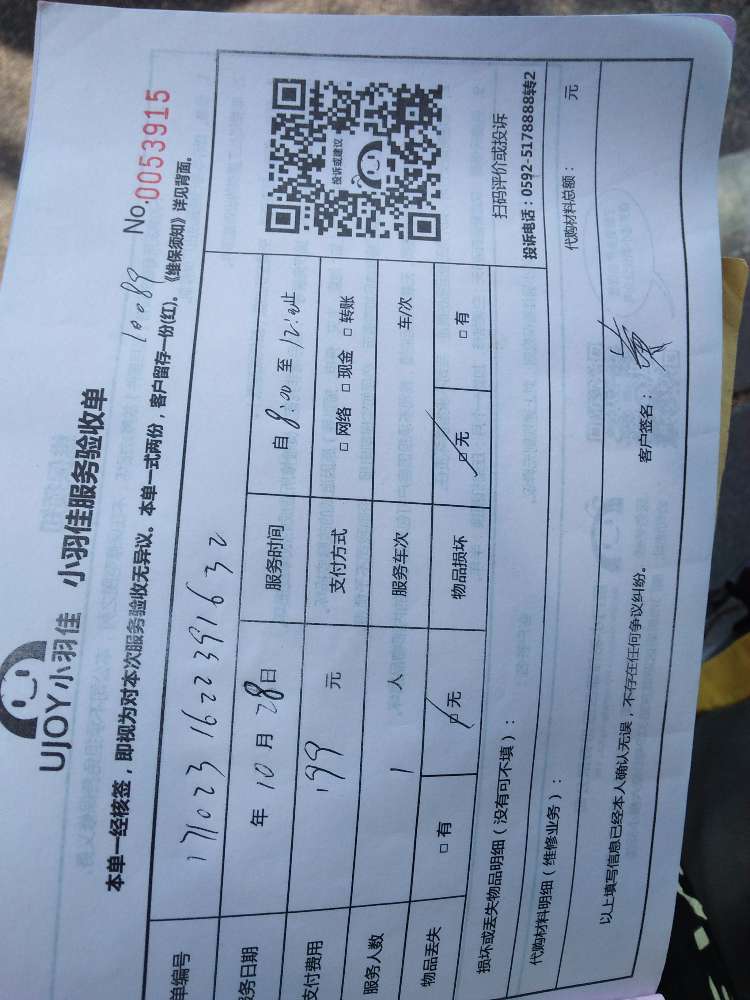 UJOY小羽佳 小羽佳服务验收单
10089 No.0053915
本单一经核签，即视为对本次服务验收无异议。本单一式两份，客户留存一份(红)。《维保须知》详见背面。
单编号 1710231622391632
务日期 年10月28日 服务时间 自8:00至12:00止
支付费用 199元 支付方式 □网络 □现金 □转账
服务人数 1人 服务车次 车/次
物品丢失 □有 □无 物品损坏 □无 □有
投诉或建议
扫码评价或投诉
投诉电话：0592-5178888转2
损坏或丢失物品明细（没有可不填）：
代购材料明细（维修业务）： 代购材料总额： 元
以上填写信息已经本人确认无误，不存在任何争议纠纷。 客户签名：